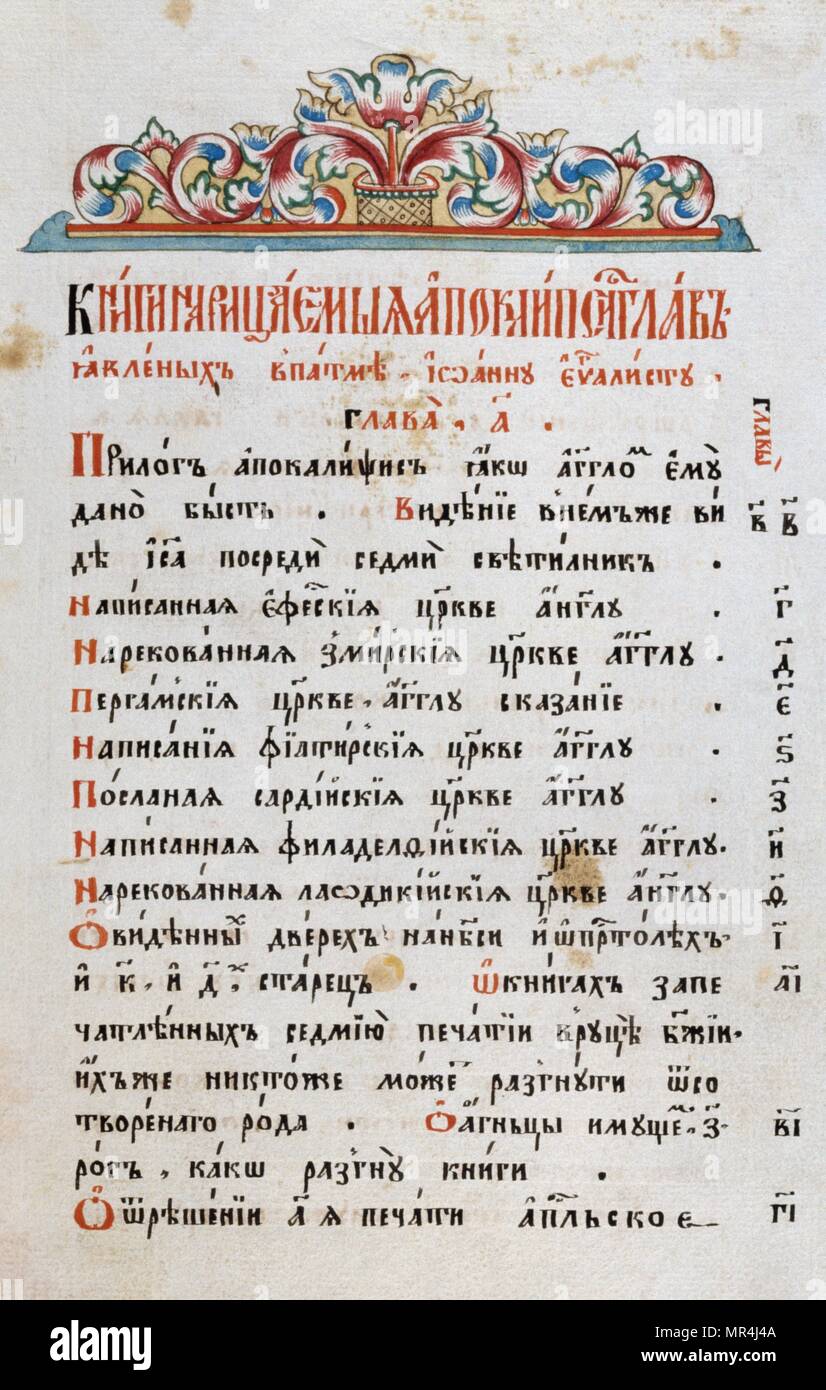 Книги нарица́емыѧ а҆покалиⷫ҇си глав̾
ꙗ҆вле́ныхъ впа́тмѣ . і҆ѡа́нну є҆ѵⷢ҇али́сту .
глава̀ . а҃ .
главы̀
Прило́гъ а҆покали́ѱисъ ꙗ҆́кѡ а҆́гг҃лоⷨ є҆мꙋ̀
дано̀ бы́сть . Ви́дѣнїе вне́мъже ви́ в҃ в҃
дѣ і҆с҃а посредѝ седмѝ свѣти́лникъ .
Напи́санная є҆фе́скїѧ цр҃кве а҆́нг҃лу . г҃
Нареко́ванная зми́рскїѧ цр҃кве а҆́гг҃лу . д҃
Перга́мскїѧ цр҃кве . а҆́гг҃лу сказа́нїе . є҃
Написа́нїѧ фїати́рскїѧ цр҃кве а҆́гг҃лу . ѕ҃
По́сланая сардїйскїѧ цр҃кве а҆́гг҃лу . з҃
Напи́санная филаделѳі́йскїѧ цр҃кве а҆́гг҃лу . и҃
Нареко́ванная лаѡдикі́йскїѧ цр҃кве а҆́нг҃лу . ѳ҃
Ѻ҆ви́дѣнныⷯ две́рехъ нанб҃си и҆ ѡ҆прⷭ҇то́лѣхъ . і҃
и҆ к҃ . и҆ д҃ⷯ ста́рецъ . Ѿкни́гахъ запе аі҃
чатлѣ́нныхъ седмїю̀ печа́тїи вруцѣ̀ бж҃їи .
и҆́хъже никто́же мо́жеⷮ разгну́ти ѿсо
творе́наго ро́да . Ѻ҆а́гньцы иму́щеⷨ . з҃ . ві҃
ро́гъ . ка́кѡ разгну̀ кни́ги .
Ѻ҆ ѿрѣше́нїи а҃ѧ печа́ти а҆пⷭ҇льское гі҃
alamy
Image ID: MR4J4A
www.alamy.com